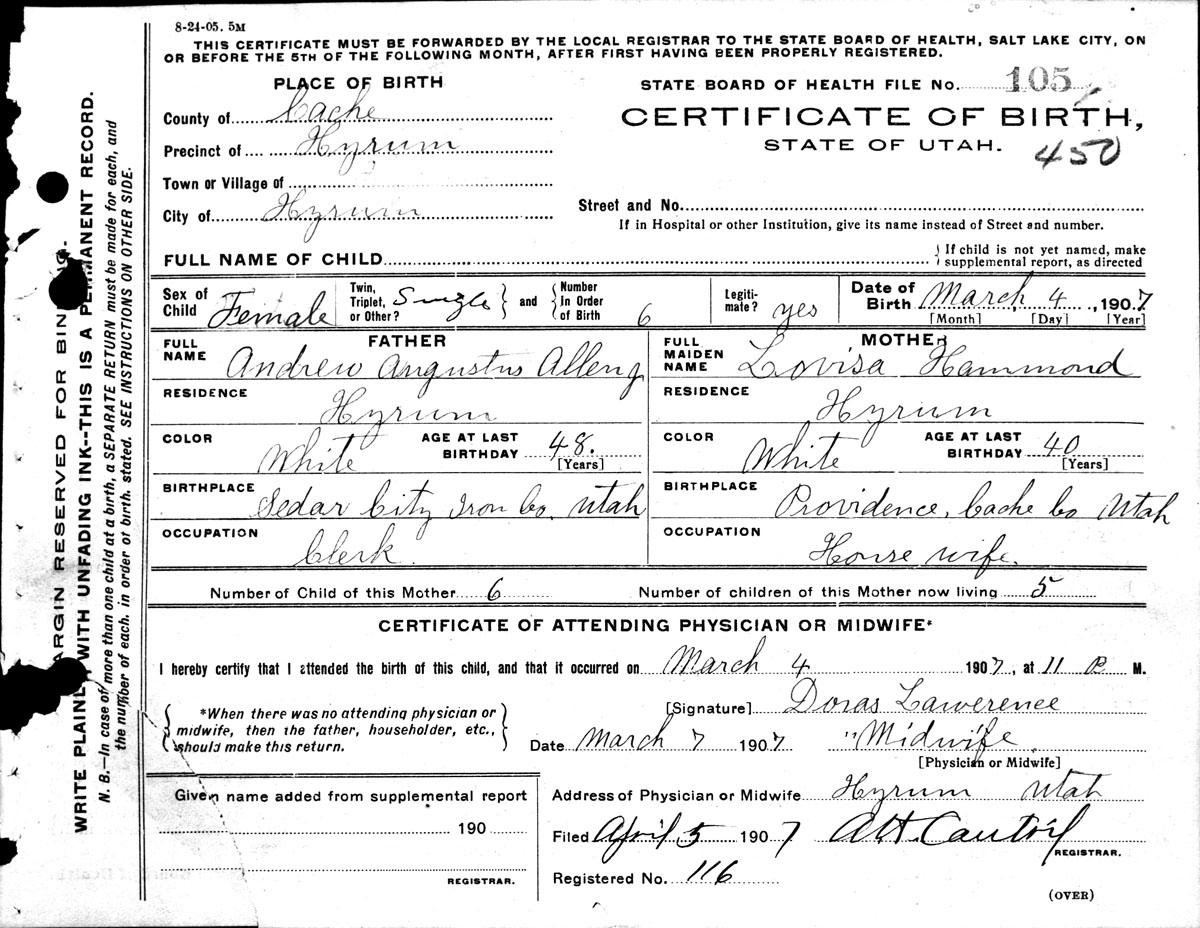 8-24-05. 5M
THIS CERTIFICATE MUST BE FORWARDED BY THE LOCAL REGISTRAR TO THE STATE BOARD OF HEALTH, SALT LAKE CITY, ON
OR BEFORE THE 5TH OF THE FOLLOWING MONTH, AFTER FIRST HAVING BEEN PROPERLY REGISTERED.
PLACE OF BIRTH
STATE BOARD OF HEALTH FILE No. 105
County of Cache
CERTIFICATE OF BIRTH,
Precinct of Hyrum
STATE OF UTAH.
450
Town or Village of
City of Hyrum
Street and No.
If in Hospital or other Institution, give its name instead of Street and number.
FULL NAME OF CHILD
{ If child is not yet named, make
supplemental report, as directed
Sex of Child Female
Twin, Triplet, or Other? Single } and { Number In Order of Birth 6
Legiti-mate? yes
Date of Birth March 4, 1907
[Month] [Day] [Year]
FATHER
FULL NAME Andrew Augustus Alleng
RESIDENCE Hyrum
COLOR White AGE AT LAST BIRTHDAY 48.
[Years]
BIRTHPLACE Sedar City Iron Co. Utah
OCCUPATION Clerk.
MOTHER
FULL MAIDEN NAME Lovisa Hammond
RESIDENCE Hyrum
COLOR White AGE AT LAST BIRTHDAY 40
[Years]
BIRTHPLACE Providence, Cache Co Utah
OCCUPATION House wife.
Number of Child of this Mother 6 Number of children of this Mother now living 5
CERTIFICATE OF ATTENDING PHYSICIAN OR MIDWIFE*
I hereby certify that I attended the birth of this child, and that it occurred on March 4 1907, at 11 P M.
{ *When there was no attending physician or
midwife, then the father, householder, etc.,
should make this return. }
[Signature] Doras Lawerence
Date March 7 1907 "Midwife
[Physician or Midwife]
Given name added from supplemental report
190
REGISTRAR.
Address of Physician or Midwife Hyrum Utah
Filed April 5 1907
REGISTRAR.
Registered No. 116
(OVER)
MARGIN RESERVED FOR BINDING.
WRITE PLAINLY WITH UNFADING INK--THIS IS A PERMANENT RECORD.
N. B.—In case of more than one child at a birth, a SEPARATE RETURN must be made for each, and
the number of each, in order of birth, stated. SEE INSTRUCTIONS ON OTHER SIDE.